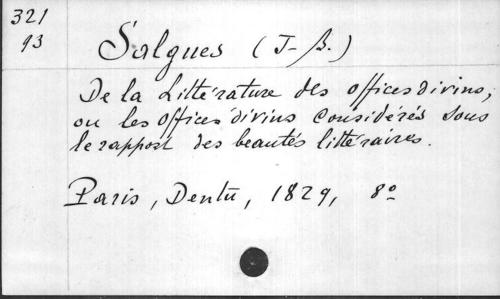 321
93
Salgues (J-B.)
De la Littérature des offices divins,
ou les offices divins considérés sous
le rapport des beautés littéraires.
Paris, Dentu, 1829, 8º